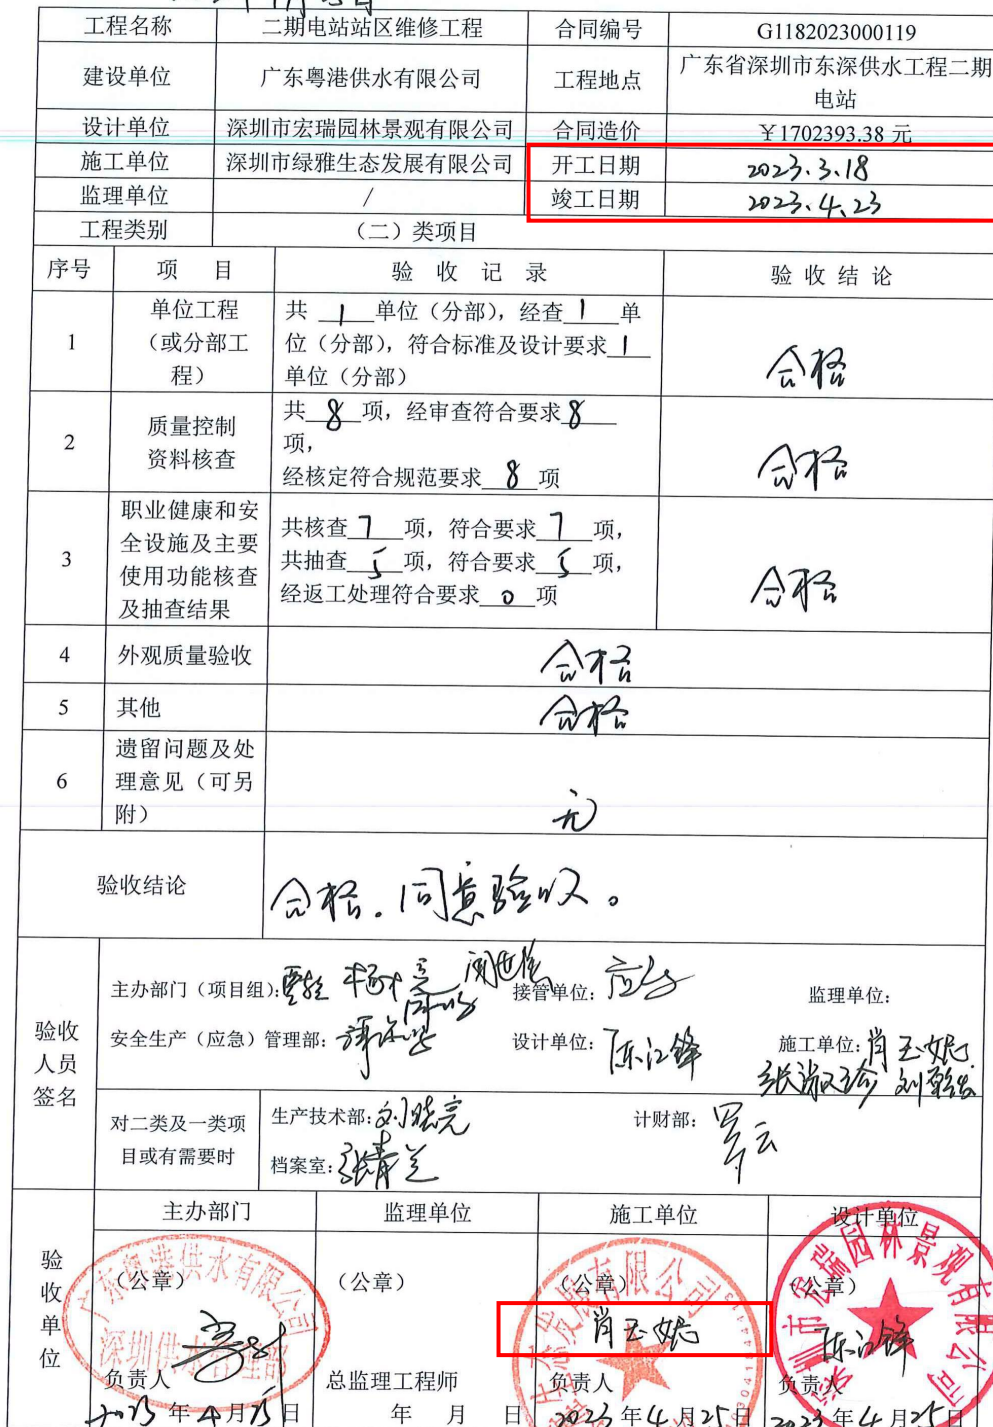 工程名称 二期电站站区维修工程 合同编号 G1182023000119
建设单位 广东粤港供水有限公司 工程地点 广东省深圳市东深供水工程二期
电站
设计单位 深圳市宏瑞园林景观有限公司 合同造价 ￥1702393.38 元
施工单位 深圳市绿雅生态发展有限公司 开工日期 2023.3.18
监理单位 / 竣工日期 2023.4.23
工程类别 （二）类项目
序号 项 目 验 收 记 录 验 收 结 论
1 单位工程
（或分部工
程）
共 1 单位（分部），经查 1 单
位（分部），符合标准及设计要求 1
单位（分部）
合格
2 质量控制
资料核查
共 8 项，经审查符合要求 8
项，
经核定符合规范要求 8 项
合格
3 职业健康和安
全设施及主要
使用功能核查
及抽查结果
共核查 7 项，符合要求 7 项，
共抽查 5 项，符合要求 5 项，
经返工处理符合要求 0 项
合格
4 外观质量验收 合格
5 其他 合格
6 遗留问题及处
理意见（可另
附）
无
验收结论 合格。同意验收。
验收
人员
签名
主办部门（项目组）： 接管单位： 监理单位：
安全生产（应急）管理部： 设计单位：陈江锋 施工单位：肖玉娥
对二类及一类项
目或有需要时
生产技术部：刘晓亮 计财部：罗云
档案室：张青兰
验
收
单
位
主办部门 监理单位 施工单位 设计单位
（公章） （公章） （公章） （公章）
广东粤港供水有限公司
深圳供水管理部
发展有限公司
深圳市宏瑞园林景观有限公司
肖玉娥 陈江锋
负责人 总监理工程师 负责人 负责人
2023 年 4 月 25 日 年 月 日 2023 年 4 月 25 日 2023 年 4 月 25 日